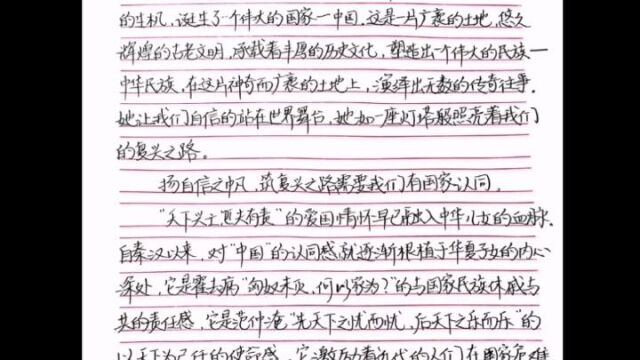 的生机，诞生了个伟大的国家一中国。这是一片广袤的土地，悠久
辉煌的古老文明，承载着丰厚的历史文化，塑造出一个伟大的民族一
中华民族，在这片神奇而广袤的土地上，演绎出无数的传奇往事。
她让我们自信的站在世界舞台，她如一座灯塔照亮着我们
的复兴之路。
扬自信之帆，筑复兴之路需要我们有国家认同。
"天下兴亡匹夫有责"的爱国情怀早已融入中华儿女的血脉。
自秦汉以来，对"中国"的认同感就逐渐根植于华夏子女的内心
深处，它是霍去病"匈奴未灭，何以家为？"的与国家民族休戚与
共的责任感，它是范仲淹"先天下之忧而忧，后天下之乐而乐"的
以天下为己任的使命感，它激励着一代的人们在国家危难